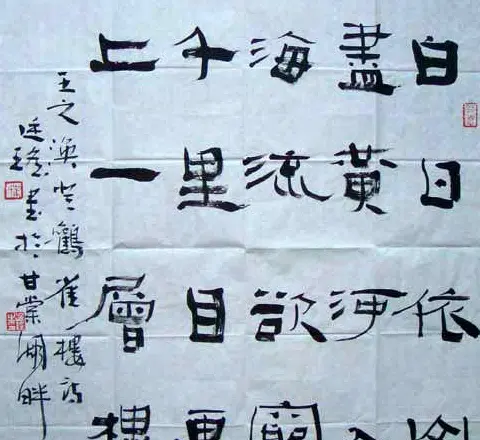 白日依山
盡黃河入
海流欲窮
千里目更
上一層樓
王之渙登鸛雀樓詩
廷書於甘棠湖畔